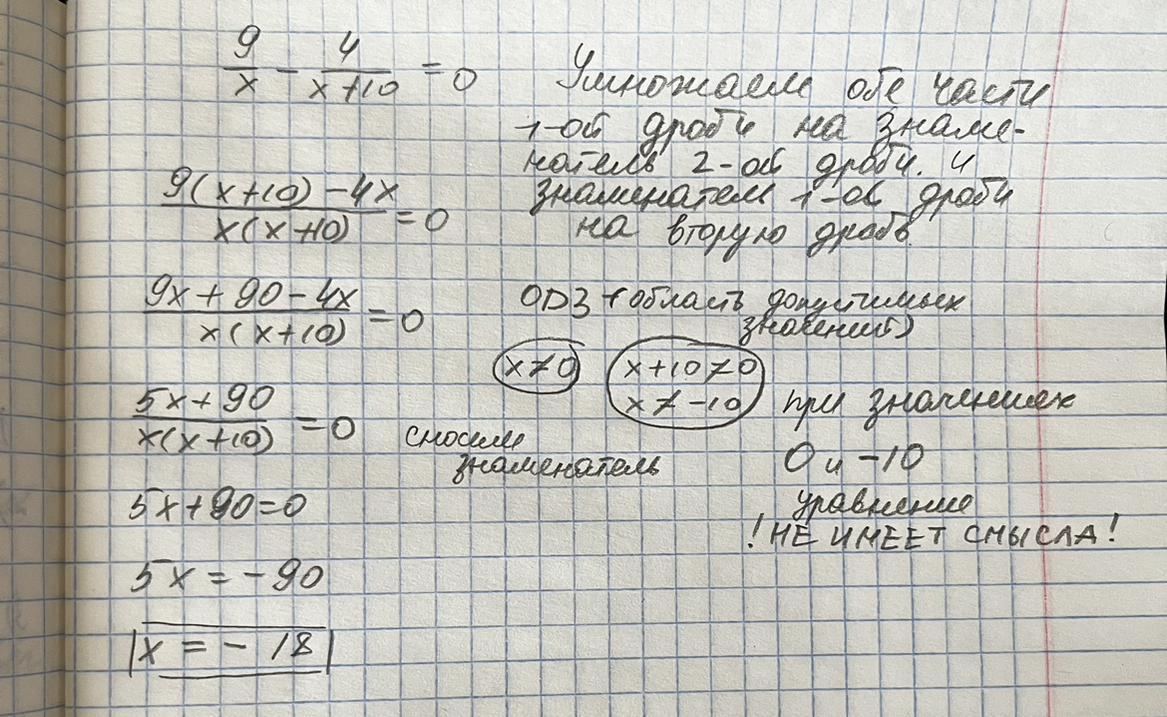 9/x - 4/(x+10) = 0
Умножаем обе части
1-ой дроби на знаме-
натель 2-ой дроби. и
знаменатель 1-ой дроби
на вторую дробь
(9(x+10) - 4x)/(x(x+10)) = 0
(9x + 90 - 4x)/(x(x+10)) = 0
ОДЗ (область допустимых
значений)
x≠0
x+10≠0
x≠-10
при значениях
0 и -10
уравнение
! НЕ ИМЕЕТ СМЫСЛА !
(5x + 90)/(x(x+10)) = 0
сносим
знаменатель
5x+90=0
5x = -90
x = - 18